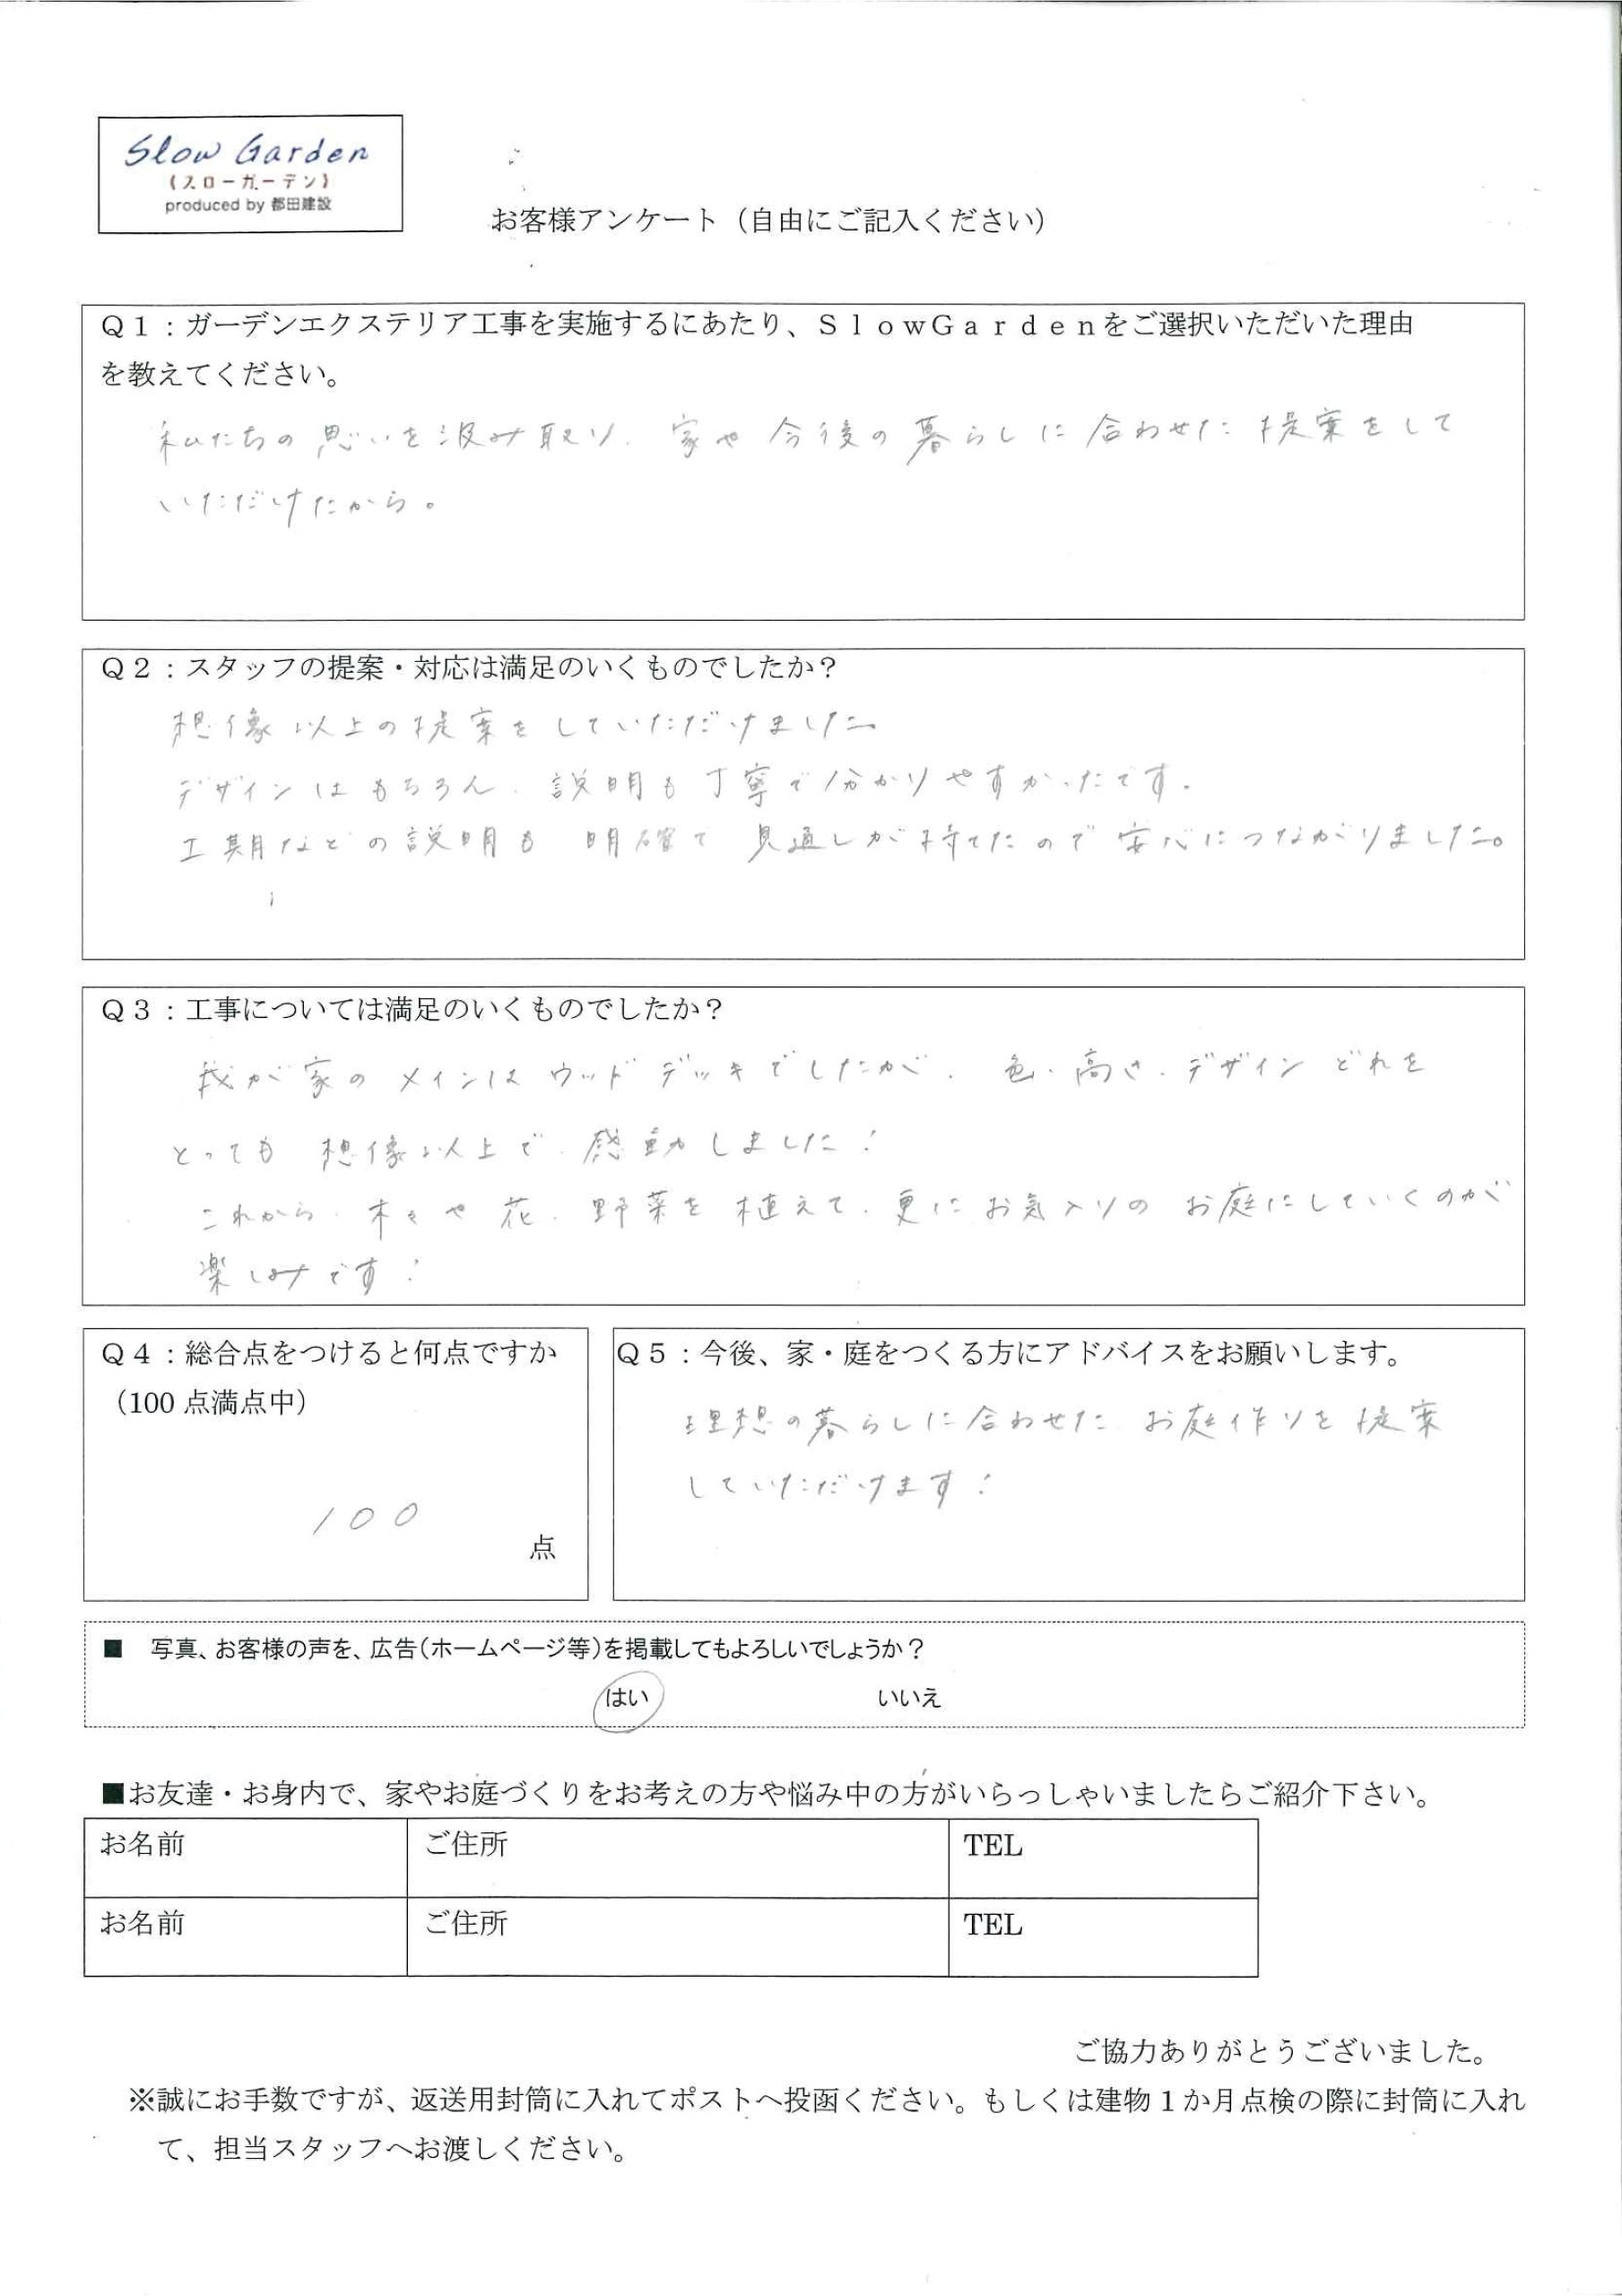 Slow Garden
(スローガーデン)
produced by 都田建設
お客様アンケート（自由にご記入ください）
Q1：ガーデンエクステリア工事を実施するにあたり、SlowGardenをご選択いただいた理由
を教えてください。
私たちの思いを汲み取り、家や今後の暮らしに合わせた提案をして
いただけたから。
Q2：スタッフの提案・対応は満足のいくものでしたか？
想像以上の提案をしていただけました。
デザインはもちろん、説明も丁寧で分かりやすかったです。
工期などの説明も明確で見通しが持てたので安心につながりました。
Q3：工事については満足のいくものでしたか？
我が家のメインはウッドデッキでしたが、色、高さ、デザインどれを
とっても想像以上で、感動しました！
これから、木々や花、野菜を植えて、更にお気入りのお庭にしていくのが
楽しみです！
Q4：総合点をつけると何点ですか
（100点満点中）
100
点
Q5：今後、家・庭をつくる方にアドバイスをお願いします。
理想の暮らしに合わせた お庭作りを提案
していただけます！
■ 写真、お客様の声を、広告（ホームページ等）を掲載してもよろしいでしょうか？
はい いいえ
■お友達・お身内で、家やお庭づくりをお考えの方や悩み中の方がいらっしゃいましたらご紹介下さい。
お名前 ご住所 TEL
お名前 ご住所 TEL
ご協力ありがとうございました。
※誠にお手数ですが、返送用封筒に入れてポストへ投函ください。もしくは建物1か月点検の際に封筒に入れ
て、担当スタッフへお渡しください。